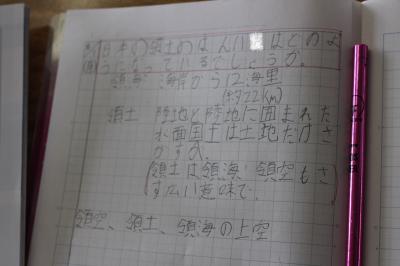 日本の領土のはんいはどのよ
うになっているでしょうか。
領海 海岸から12海里
(約22km)
領土 陸地と陸地に囲まれた
水面国土は土地だけさ
がす み。
領土は領海 領空もさ
す広い意味で。
領空、領土、領海の上空